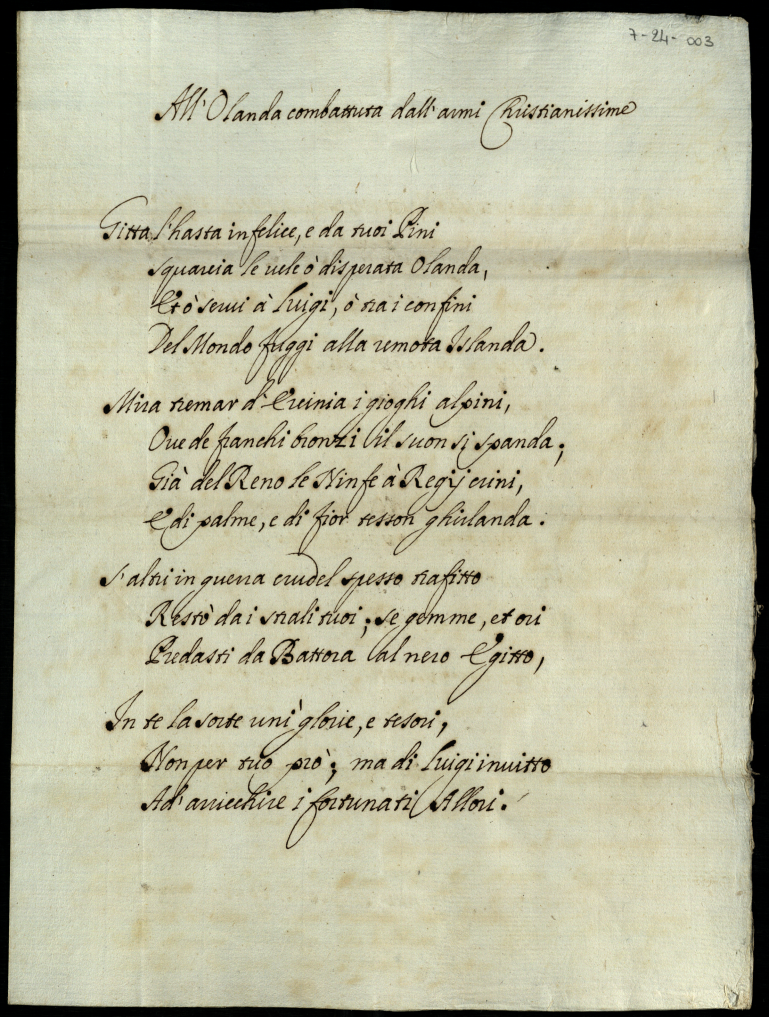 7-24-003
All'Olanda combattuta dall'armi Christianissime
Gitta l'hasta infelice, e da tuoi Pini
squarcia le vele ò disperata Olanda,
Et ò serui à Luigi, ò tra i confini
Del Mondo fuggi alla remota Islanda.
Mira tremar d'Ercinia i gioghi alpini,
Oue de franchi bronzi il suon si spanda;
Già del Reno le Ninfe à Regij crini,
E di palme, e di fior tesson ghirlanda.
S'altri in guerra crudel spesso trafitto
Restò da i strali tuoi; se gemme, et ori
Predasti da Battora al nero Egitto,
In te la sorte unì glorie, e tesori,
Non per tuo prò; ma di Luigi inuitto
Ad'arricchire i fortunati Allori.